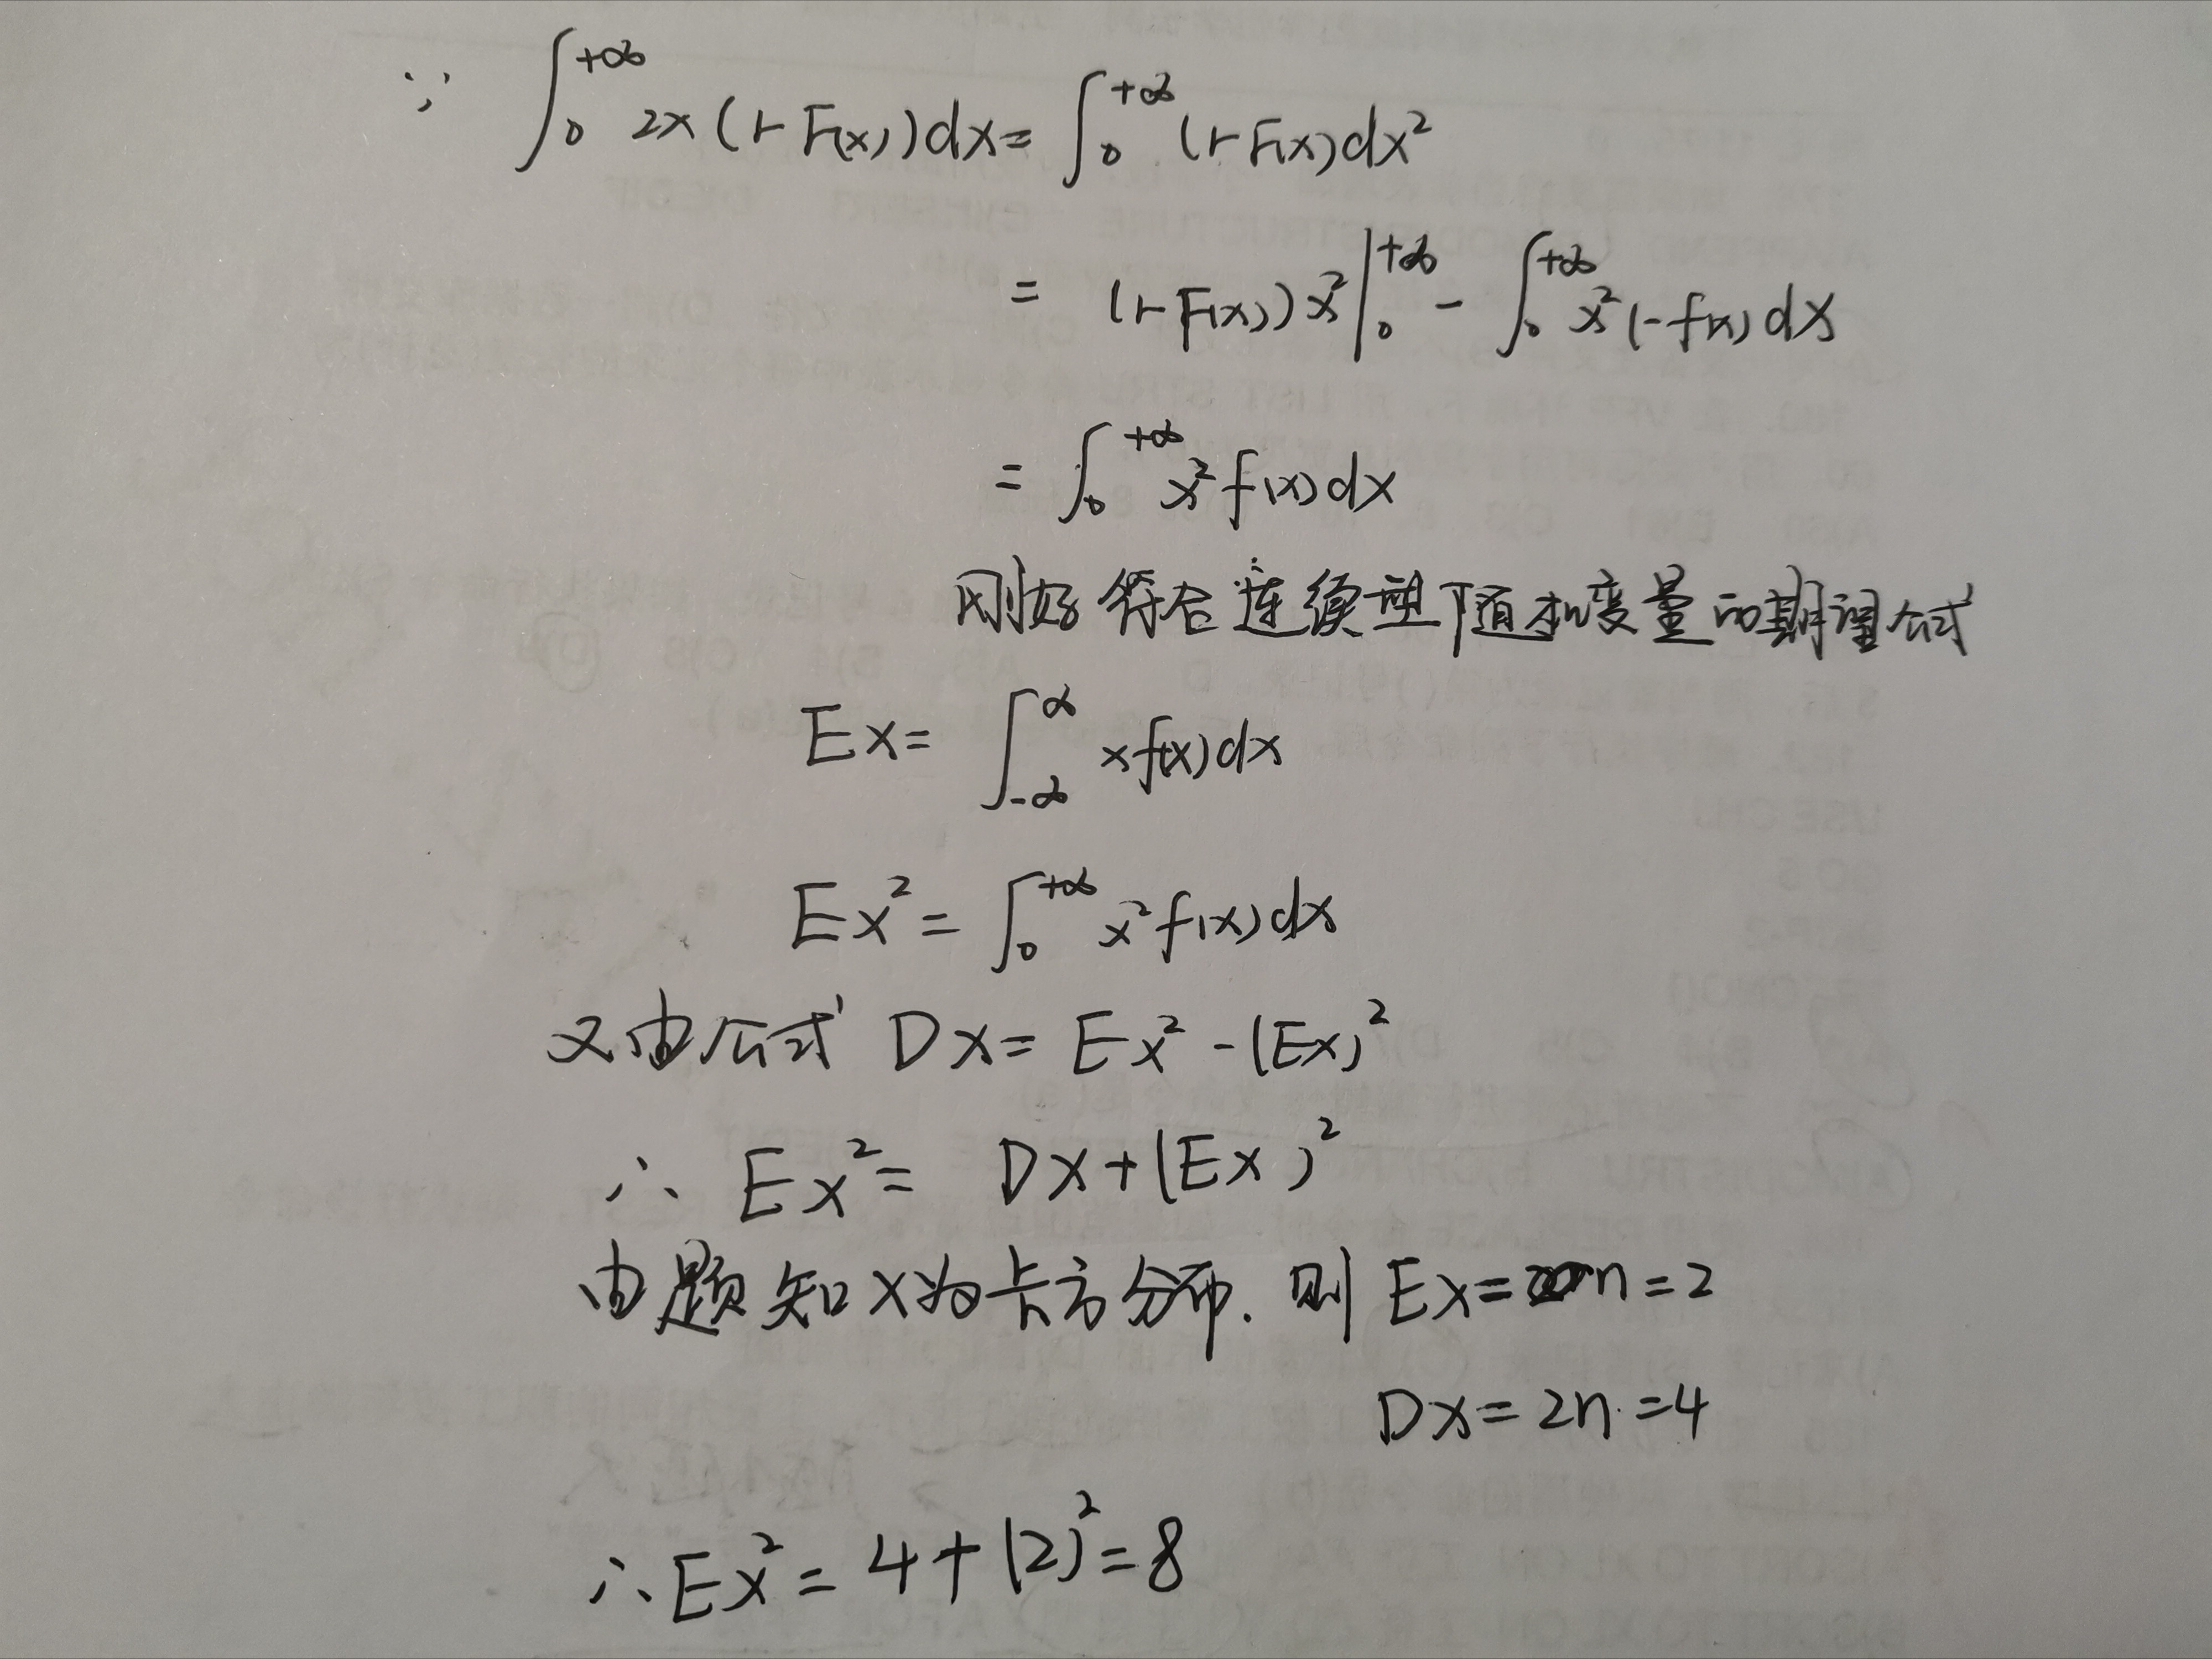 ∵ ∫₀^{+∞} 2x(1-F(x))dx = ∫₀^{+∞} (1-F(x)dx²
= (1-F(x))x²|₀^{+∞} - ∫₀^{+∞} x²(-f(x)dx
= ∫₀^{+∞} x²f(x)dx
刚好符合连续型随机变量的期望公式
Ex = ∫_{-∞}^{∞} xf(x)dx
Ex² = ∫₀^{+∞} x²f(x)dx
又由公式 Dx = Ex² - (Ex)²
∴ Ex² = Dx + (Ex)²
由题知X为卡方分布. 则 Ex = n = 2
Dx = 2n = 4
∴ Ex² = 4 + (2)² = 8